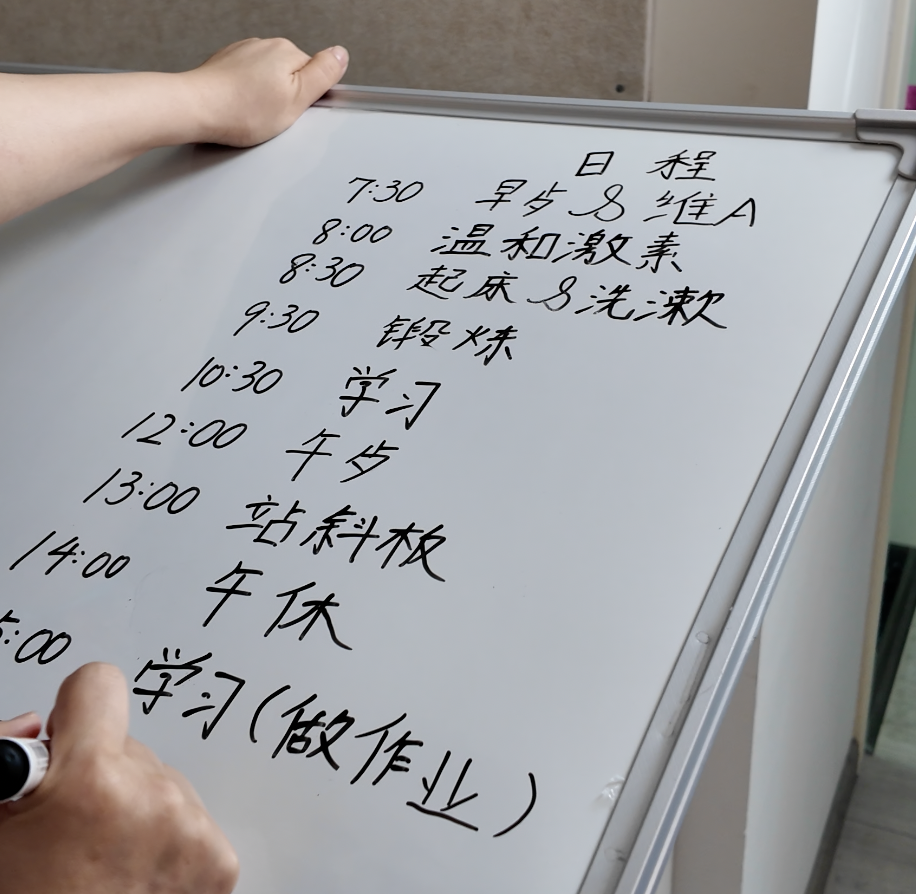 日 程
7:30 早歺 & 维A
8:00 温和激素
8:30 起床 & 洗漱
9:30 锻炼
10:30 学习
12:00 午歺
13:00 站斜板
14:00 午休
5:00 学习(做作业)